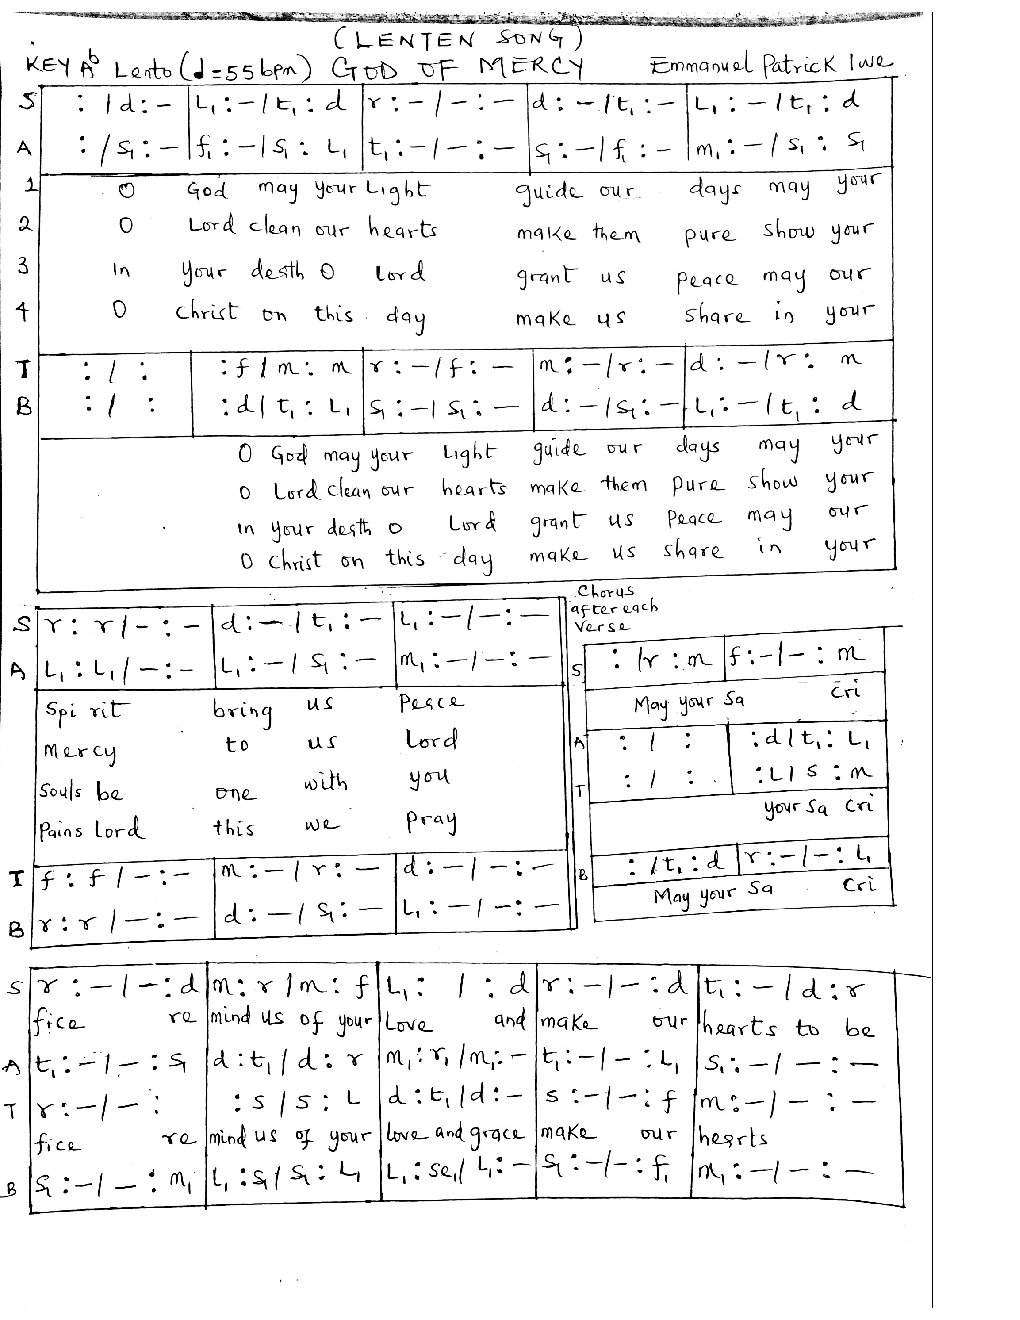 (LENTEN SONG)
KEY Ab Lento (d=55bpm) GOD OF MERCY Emmanuel Patrick Iwe
S : / d : - | L₁ : - / t₁ : d | r : - / - : - | d : - / t₁ : - | L₁ : - / t₁ : d
A : / S₁ : - | f₁ : - / S₁ : L₁ | t₁ : - / - : - | S₁ : - / f₁ : - | m₁ : - / S₁ : S₁
1 O God may your Light guide our days may your
2 O Lord clean our hearts make them pure show your
3 In your death O Lord grant us peace may our
4 O Christ on this day make us share in your
T : / : | : f / m : m | r : - / f : - | m : - / r : - | d : - / r : m
B : / : | : d / t₁ : L₁ | S₁ : - / S₁ : - | d : - / S₁ : - | L₁ : - / t₁ : d
O God may your Light guide our days may your
O Lord clean our hearts make them pure show your
in your death o Lord grant us Peace may our
O Christ on this day make us share in your
S r : r / - : - | d : - / t₁ : - | L₁ : - / - : -
A L₁ : L₁ / - : - | L₁ : - / S₁ : - | m₁ : - / - : -
Spi rit bring us Peace
Mercy to us Lord
Souls be one with you
Pains Lord this we pray
T f : f / - : - | m : - / r : - | d : - / - : -
B r : r / - : - | d : - / S₁ : - | L₁ : - / - : -
Chorus
after each
Verse
S : / r : m | f : - / - : m
May your Sa Cri
A : / : | : d / t₁ : L₁
T : / : | : L / S : m
your Sa Cri
B : / t₁ : d | r : - / - : L₁
May your Sa Cri
S r : - / - : d | m : r / m : f | L₁ : / : d | r : - / - : d | t₁ : - / d : r
fice re mind us of your Love and make our hearts to be
A t₁ : - / - : S₁ | d : t₁ / d : r | m₁ : r₁ / m₁ : - | t₁ : - / - : L₁ | S₁ : - / - : -
T r : - / - : | : s / s : L | d : t₁ / d : - | s : - / - : f | m : - / - : -
fice re mind us of your love and grace make our hearts
B S₁ : - / - : m₁ | L₁ : S₁ / S₁ : L₁ | L₁ : se₁ / L₁ : - | S₁ : - / - : f₁ | m₁ : - / - : -